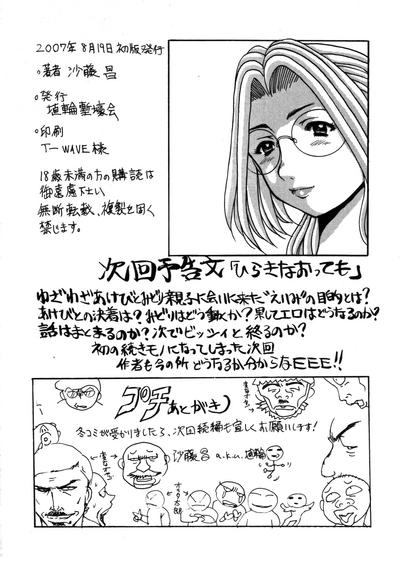 2007年8月19日初版発行
・著者 沙藤 昌
・発行
埴輪塹壕会
・印刷
T-WAVE様
18歳未満の方の購読は
御遠慮下さい。
無断転載、複製を固く
禁じます。
次回予告文「ひらきなおっても」
わざわざあけびとみどり親子に会いに来た“えいみ”の目的とは?
あけびとの決着は?みどりはどう動くか?果してエロはどうなるのか?
話はまとまるのか?次でビッシィと終るのか?
初の続きモノになってしまった次回
作者も今の所どうなるか分からなEEE!!
プチあとがき
冬コミが受かりましたら、次回続編も宜しくお願いします!
沙藤昌 a.k.a. 埴輪